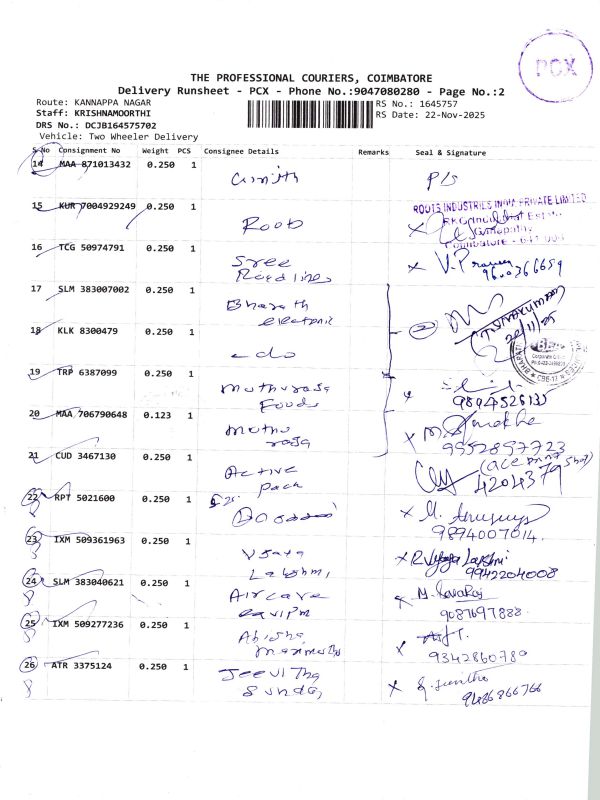 PCX
THE PROFESSIONAL COURIERS, COIMBATORE
Delivery Runsheet - PCX - Phone No.:9047080280 - Page No.:2
Route: KANNAPPA NAGAR
RS No.: 1645757
Staff: KRISHNAMOORTHI
RS Date: 22-Nov-2025
DRS No.: DCJB164575702
Vehicle: Two Wheeler Delivery
S No Consignment No Weight PCS Consignee Details Remarks Seal & Signature
14 MAA 871013432 0.250 1
ROOTS INDUSTRIES INDIA PRIVATE LIMITED
15 KUR 7004929249 0.250 1
Roob
Ganapathy
Coimbatore - 641 006
16 TCG 50974791 0.250 1
Sree
Roadlines
9600366659
17 SLM 383007002 0.250 1
Bharath
electronic
18 KLK 8300479 0.250 1
do
19 TRP 6387099 0.250 1
Muthuraja
Foods
9894526135
20 MAA 706790648 0.123 1
Muthu
raja
9952897723
21 CUD 3467130 0.250 1
Active
pack
4204379
22 RPT 5021600 0.250 1
9894007014
23 IXM 509361963 0.250 1
Lakshmi
R. Vijaya Lakshmi
9942204008
24 SLM 383040621 0.250 1
8
Aircare
equipm
9087697888
25 IXM 509277236 0.250 1
8
9342860780
26 ATR 3375124 0.250 1
8
Jeevitha
Sundar
9486866766